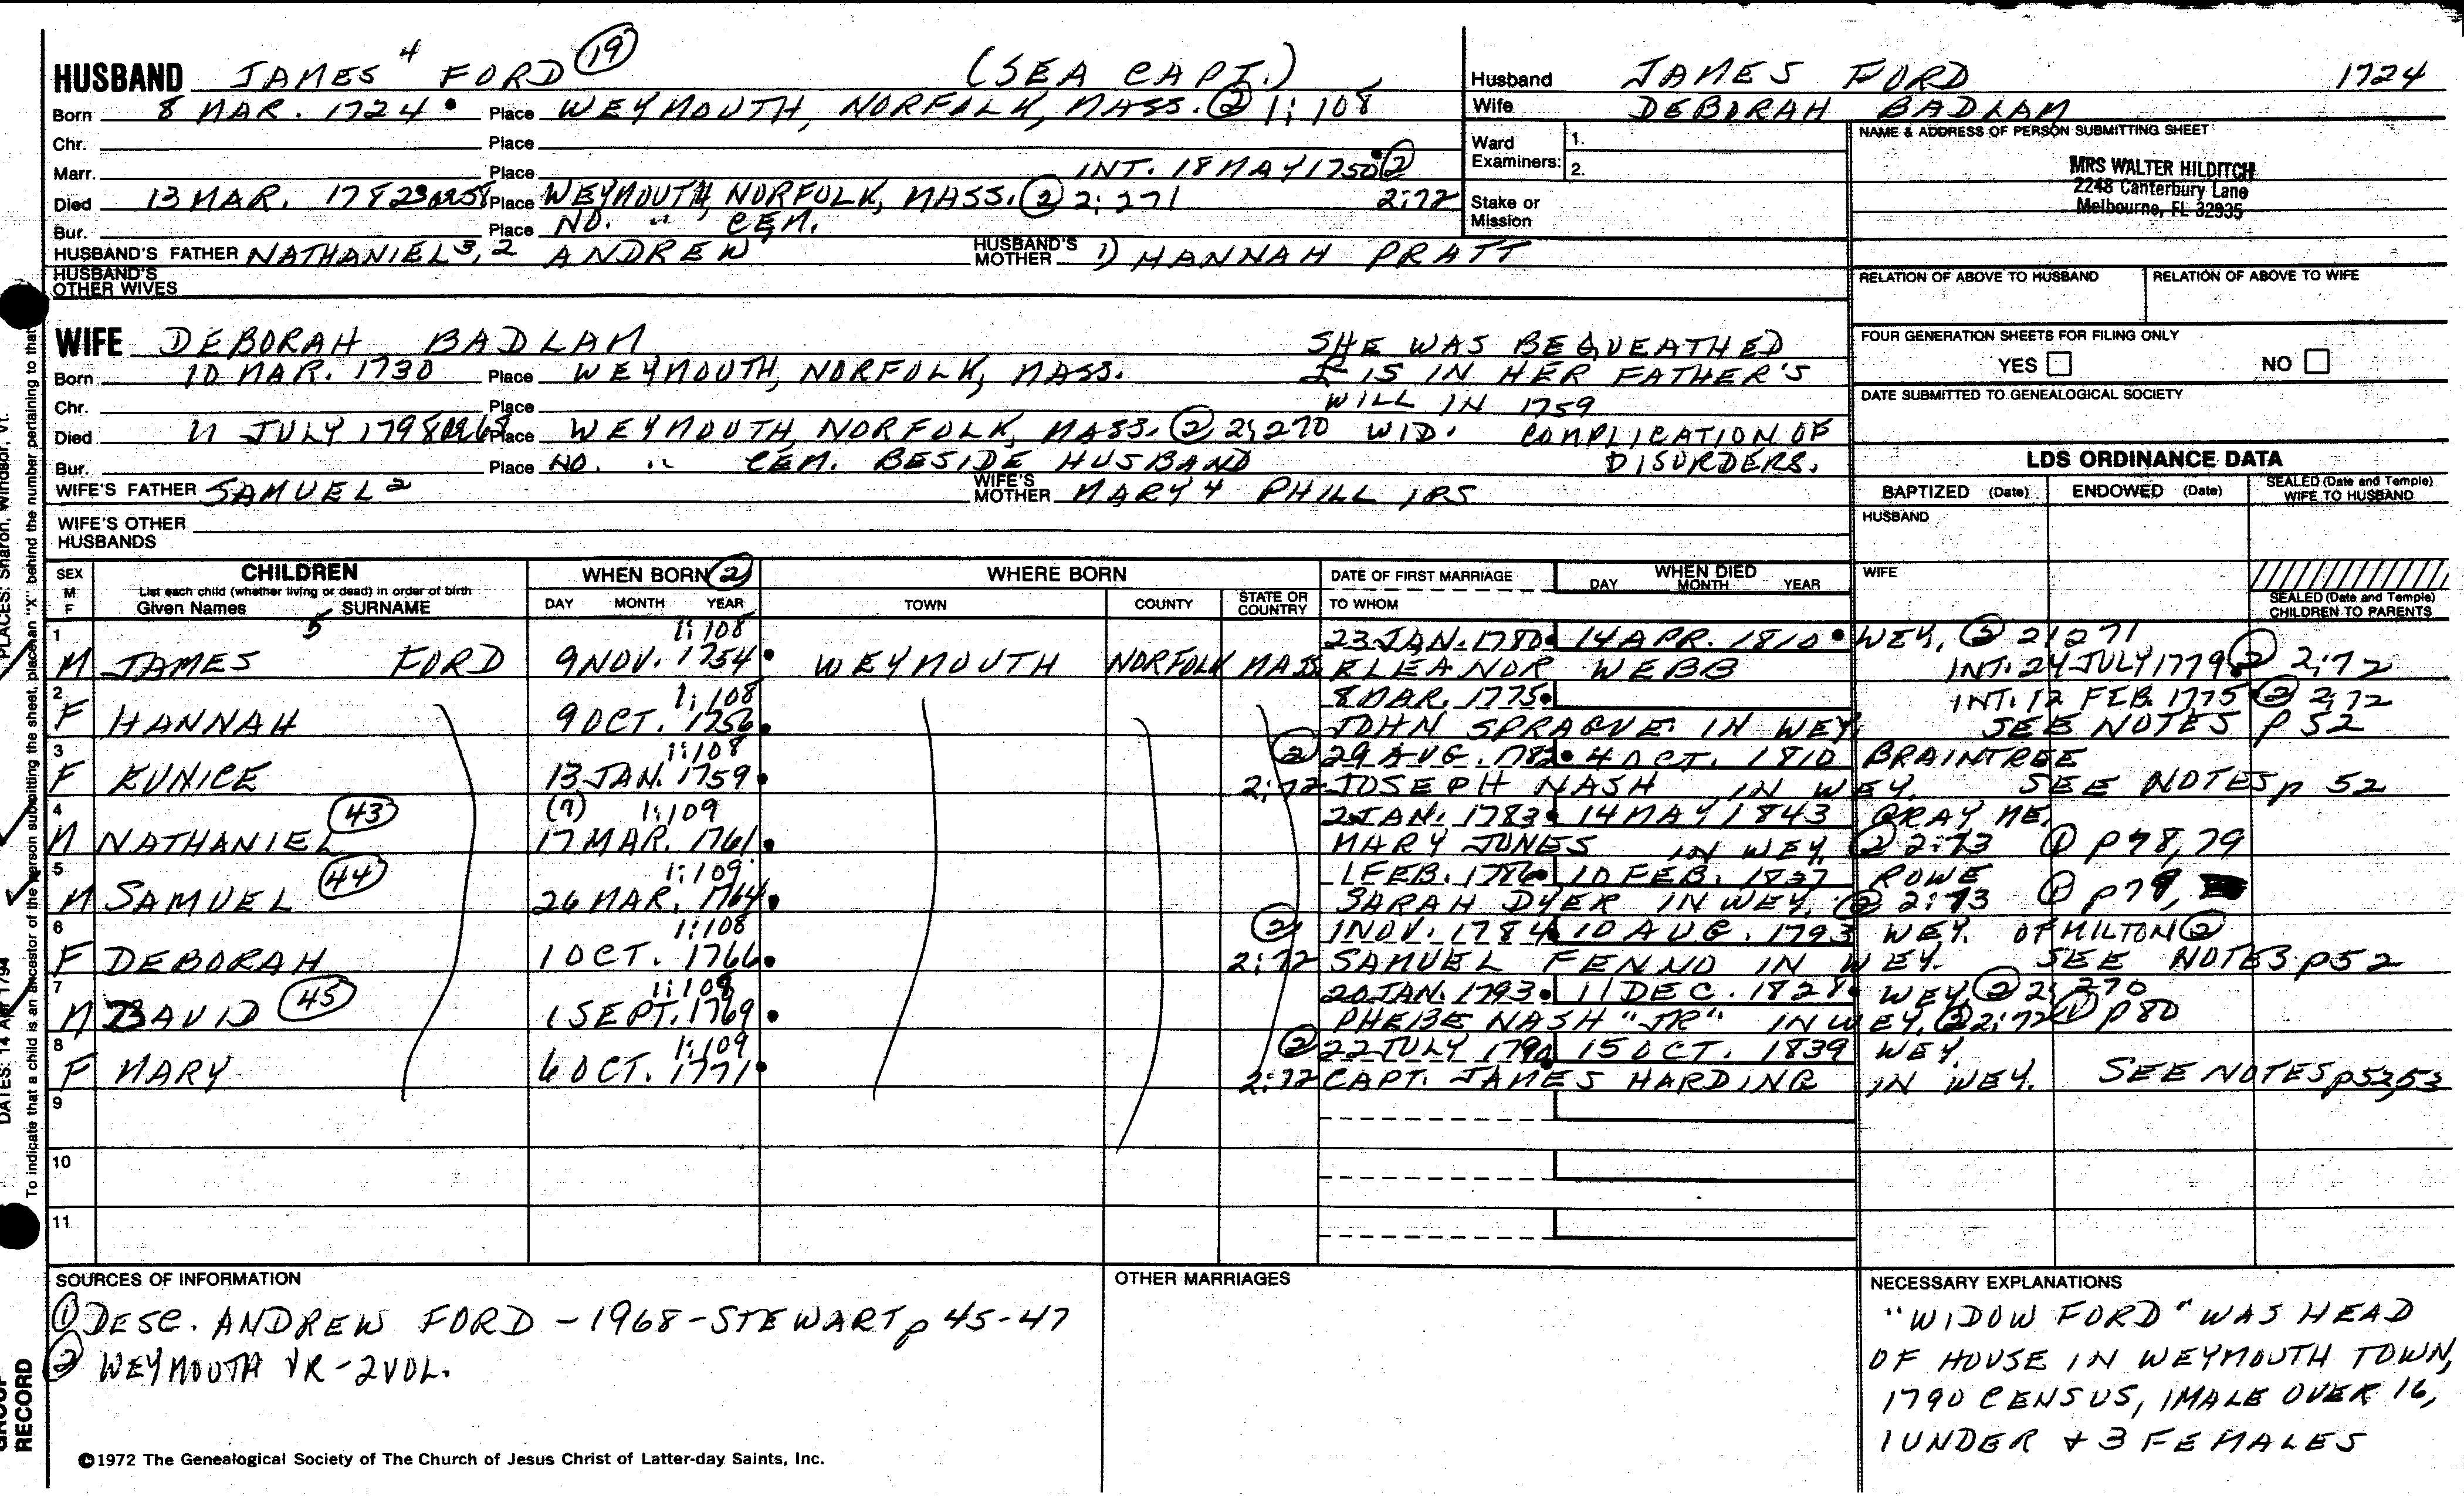 HUSBAND JAMES 4 FORD (19) (SEA CAPT.)
Born 8 MAR. 1724 • Place WEYMOUTH, NORFOLK, MASS. (2) 1:108
Chr. Place
Marr. Place INT. 18 MAY 1750 • (2)
Died 13 MAR. 1782 Place WEYMOUTH, NORFOLK, MASS. (2) 2:271 2:72
Bur. Place NO. " CEM.
HUSBAND'S FATHER NATHANIEL 3, 2 ANDREW HUSBAND'S MOTHER 1) HANNAH PRATT
HUSBAND'S OTHER WIVES
Husband JAMES FORD 1724
Wife DEBORAH BADLAM
Ward Examiners: 1.
2.
Stake or Mission
NAME & ADDRESS OF PERSON SUBMITTING SHEET
MRS WALTER HILDITCH
2248 Canterbury Lane
Melbourne, FL 32935
RELATION OF ABOVE TO HUSBAND RELATION OF ABOVE TO WIFE
WIFE DEBORAH BADLAM SHE WAS BEQUEATHED
Born 10 MAR. 1730 Place WEYMOUTH, NORFOLK, MASS. & IS IN HER FATHER'S
Chr. Place WILL IN 1759
Died 11 JULY 1798 Place WEYMOUTH, NORFOLK, MASS. (2) 2:270 WID. COMPLICATION OF
Bur. Place NO. " CEM. BESIDE HUSBAND DISORDERS.
WIFE'S FATHER SAMUEL 2 WIFE'S MOTHER MARY 4 PHILLIPS
WIFE'S OTHER HUSBANDS
FOUR GENERATION SHEETS FOR FILING ONLY
YES NO
DATE SUBMITTED TO GENEALOGICAL SOCIETY
LDS ORDINANCE DATA
BAPTIZED (Date) ENDOWED (Date) SEALED (Date and Temple) WIFE TO HUSBAND
HUSBAND
WIFE
SEALED (Date and Temple) CHILDREN TO PARENTS
SEX M F CHILDREN WHEN BORN (2) WHERE BORN DATE OF FIRST MARRIAGE WHEN DIED
List each child (whether living or dead) in order of birth
Given Names SURNAME DAY MONTH YEAR TOWN COUNTY STATE OR COUNTRY TO WHOM DAY MONTH YEAR
1 5 1:108 23 JAN. 1780 • 14 APR. 1810 • WEY. (2) 2:271
M JAMES FORD 9 NOV. 1754 • WEYMOUTH NORFOLK MASS ELEANOR WEBB INT. 24 JULY 1779 (2) 2:72
2 1:108 8 MAR. 1775 • INT. 12 FEB. 1775 (2) 2:72
F HANNAH 9 OCT. 1756 • JOHN SPRAGUE IN WEY. SEE NOTES p 52
3 1:108 (2) 29 AUG. 1782 • 4 OCT. 1810 BRAINTREE
F EUNICE 13 JAN. 1759 • 2:72 JOSEPH NASH IN WEY. SEE NOTES p 52
4 (43) (?) 1:109 2 JAN. 1783 • 14 MAY 1843 GRAY ME.
M NATHANIEL 17 MAR. 1761 • MARY JONES IN WEY. (2) 2:73 (1) p 78, 79
5 (44) 1:109 1 FEB. 1786 • 10 FEB. 1837 ROWE
M SAMUEL 26 MAR. 1764 • SARAH DYER IN WEY. (2) 2:73 (1) p 79,
6 1:108 (2) 1 NOV. 1784 • 10 AUG. 1793 WEY. OF MILTON (2)
F DEBORAH 1 OCT. 1766 • 2:72 SAMUEL FENNO IN WEY. SEE NOTES p 52
7 (45) 1:108 20 JAN. 1793 • 11 DEC. 1828 • WEY. (2) 2:270
M DAVID 1 SEPT. 1769 • PHEBE NASH "JR" IN WEY. (2) 2:72 (1) p 80
8 1:109 (2) 22 JULY 1790 • 15 OCT. 1839 WEY.
F MARY 6 OCT. 1771 • 2:72 CAPT. JAMES HARDING IN WEY. SEE NOTES p 52, 53
9
10
11
SOURCES OF INFORMATION
(1) DESC. ANDREW FORD - 1968 - STEWART p 45-47
(2) WEYMOUTH VR - 2 VOL.
OTHER MARRIAGES
NECESSARY EXPLANATIONS
"WIDOW FORD" WAS HEAD
OF HOUSE IN WEYMOUTH TOWN,
1790 CENSUS, 1 MALE OVER 16,
1 UNDER + 3 FEMALES
©1972 The Genealogical Society of The Church of Jesus Christ of Latter-day Saints, Inc.
PLACES: Sharon, Windsor, VT.
To indicate that a child is an ancestor of the person submitting the sheet, place an "X" behind the number pertaining to that
DATES: 14 Apr 1794
GROUP
RECORD